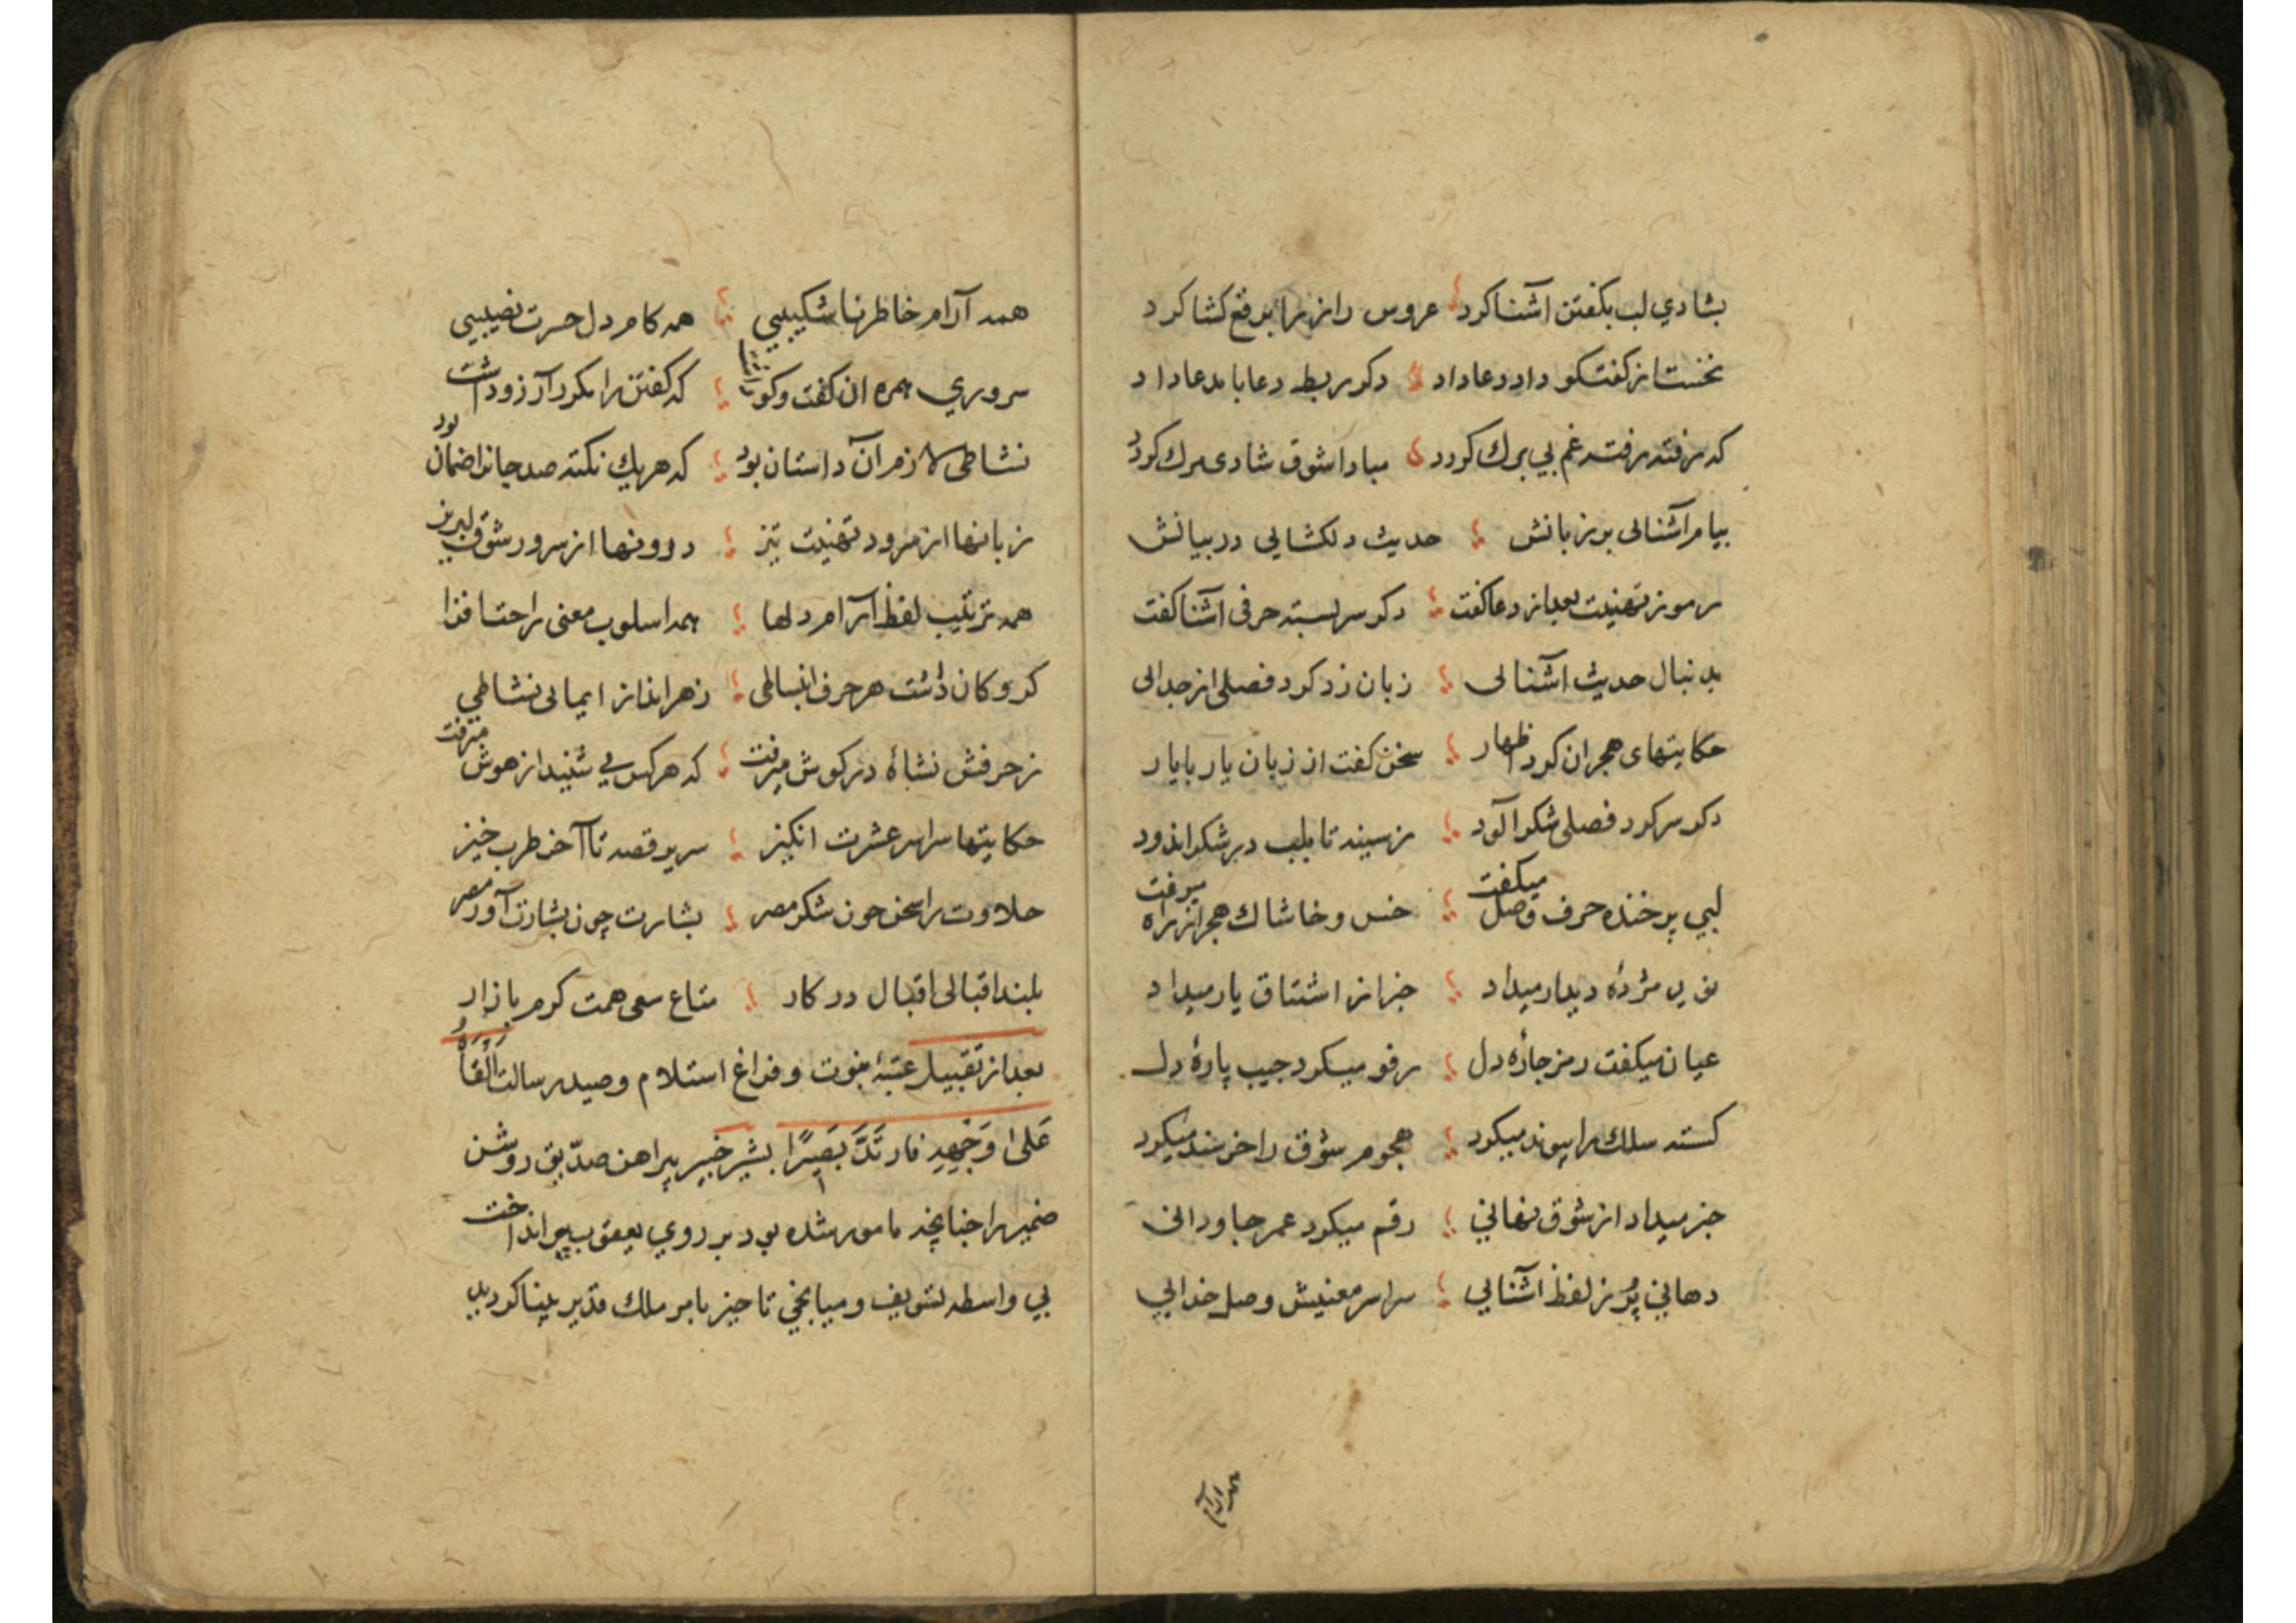 بشادي لب بكفتن اشنا كرد عروس راز را برقع كشا كرد
نخست از كفتكو داد دعا داد دكر ربط دعا با مدعا داد
كه رفته رفته غم بي برك كردد مبادا شوق شادى مرك كردد
پيام آشنائى بر زبانش حديث دلكشايى در بيانش
رموز تهنيت بعد از دعا كفت دكر سربسته حرفى آشنا كفت
بدنبال حديث آشنائى زبان زد كرد فصلى از جدائى
حكايتهاى هجران كرد اظهار سخن كفت از زبان يار با يار
دكر سر كرد فصلى شكر آلود ز سينه تا بلب در شكر اندود
لبي پر خنده حرف وصل ميكفت خس و خاشاك هجر از راه ميرفت
نويد مژدۀ ديدار ميداد خبر از اشتياق يار ميداد
عيان ميكفت رمز چارۀ دل رفو ميكرد جيب پارۀ دل
كسسته سلك را پيوند ميكرد هجوم شوق را خرسند ميكرد
خبر ميداد از شوق نهاني رقم ميكرد عمر جاودانى
دهاني پُر ز لفظ آشنايي سراسر معنيش وصل خدايي
همه آرام
همه آرام خاطر ناشكيبي همه كام دل حسرت نصيبي
سروري بهره ان كفت وكو داشت كه كفتن را مكرر آرزو داشت
نشاطى لازم آن داستان بود كه هر يك نكته صد جانرا ضمان بود
زبانها از سرود تهنيت تيز درونها از سرور شوق لبريز
همه ترتيب لفظ آرام دلها همه اسلوب معنى راحت افزا
كرو كان داشت هر حرف انبساطى ز هر انداز ايمائى نشاطي
ز حرفش نشاۀ در كوش ميرفت كه هر كس مى شنيد از هوش ميرفت
حكايتها سراسر عشرت انكيز سرير قصه تا آخر طرب خيز
حلاوت را سخن چون شكر مصر بشارت چون بشارت آور مصر
بلند اقبالى اقبال در كار متاع سعى همت كرم بازار
بعد از تقبيل عتبۀ نبوت و فراغ استلام وصيد رسالت اَلْقَاهُ
عَلىٰ وَجْهِهِ فارتَدَّ بَصيرًا بشير خبير پيراهن صدّيق روشن
ضمير را چنانچه مامور شده بود بر روي يعقوب پير انداخت
بي واسطه تشويف و ميانجي تاخير بامر ملك قدير بينا كرديد